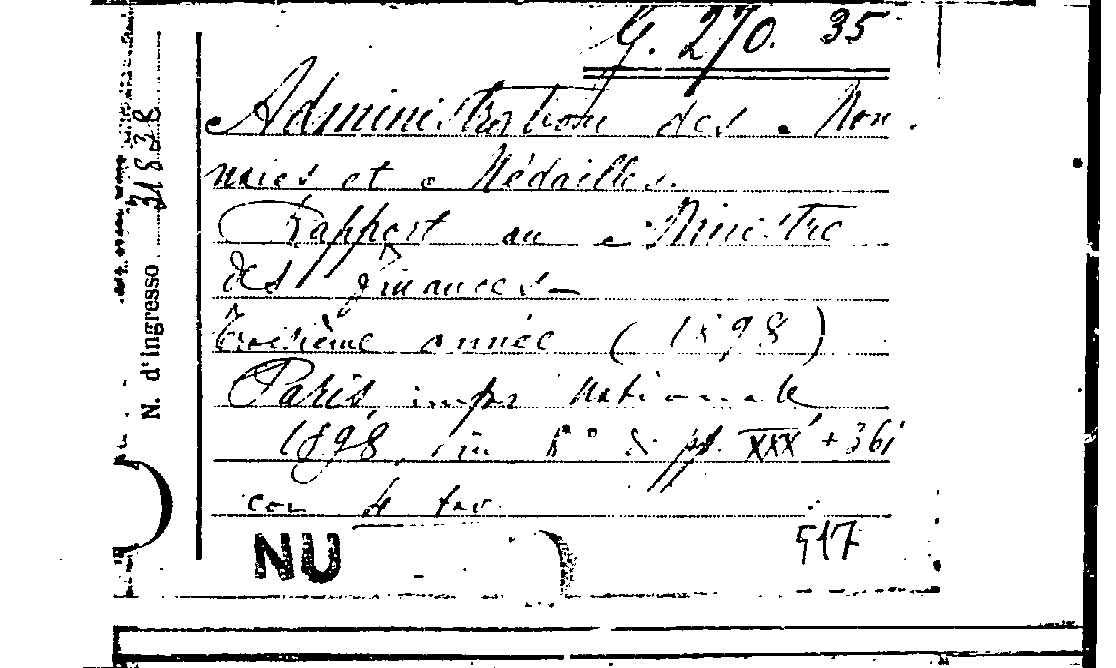 G. 270. 35
Administration des Mon
naies et Médailles.
Rapport au Ministre
des finances—
troisième année (1898)
Paris, impr Nationale
1898, in 8° di pp. XXX + 361
con 4 tav.
NU
517
N. d'Ingresso 31838